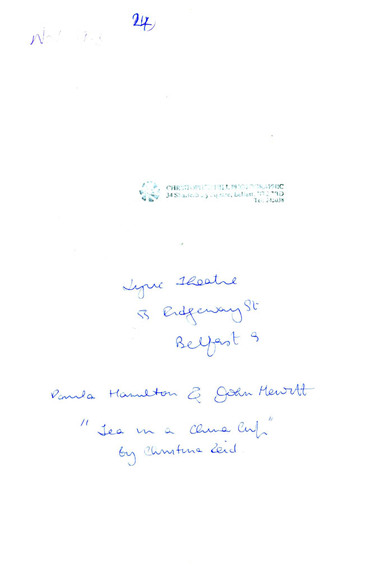 24
Lyric Theatre
Ridgeway St
Belfast 9
Paula Hamilton & John Hewitt
"Tea in a China Cup"
by Christina Reid